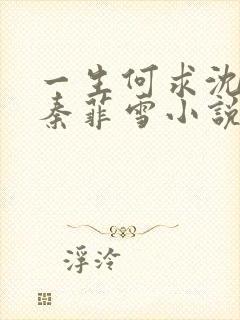 一生何求沈
秦菲雪小説
浮泠